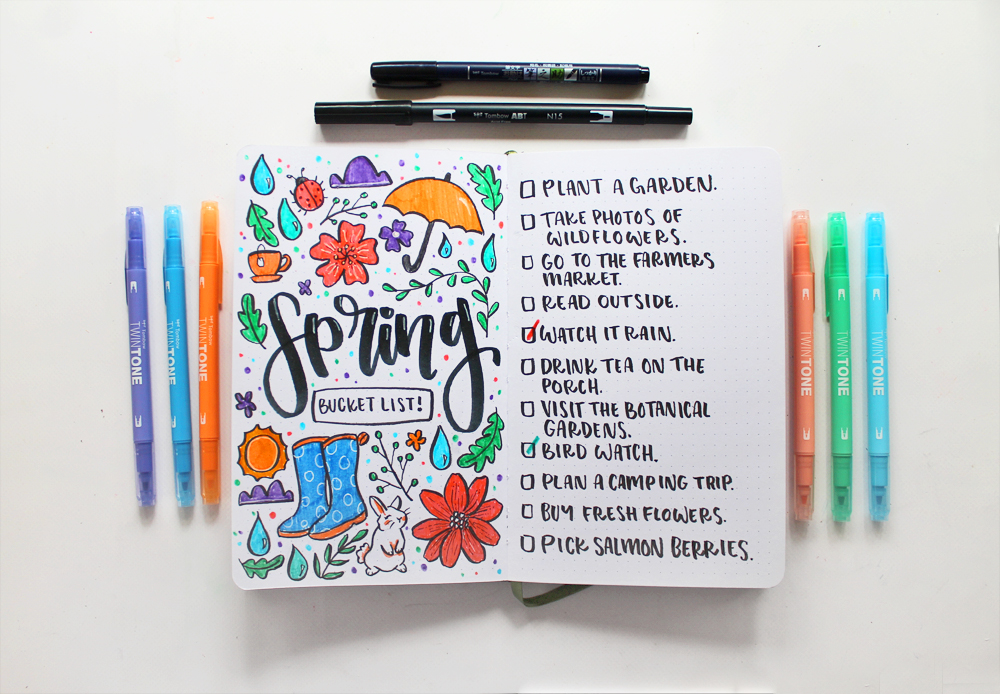 Tombow ABT N15
Spring
BUCKET LIST!
PLANT A GARDEN.
TAKE PHOTOS OF
WILDFLOWERS.
GO TO THE FARMERS
MARKET.
READ OUTSIDE.
WATCH IT RAIN.
DRINK TEA ON THE
PORCH.
VISIT THE BOTANICAL
GARDENS.
BIRD WATCH.
PLAN A CAMPING TRIP.
BUY FRESH FLOWERS.
PICK SALMON BERRIES.
Tombow TWINTONE
Tombow TWINTONE
Tombow TWINTONE
TWINTONE
TWINTONE
TWINTONE